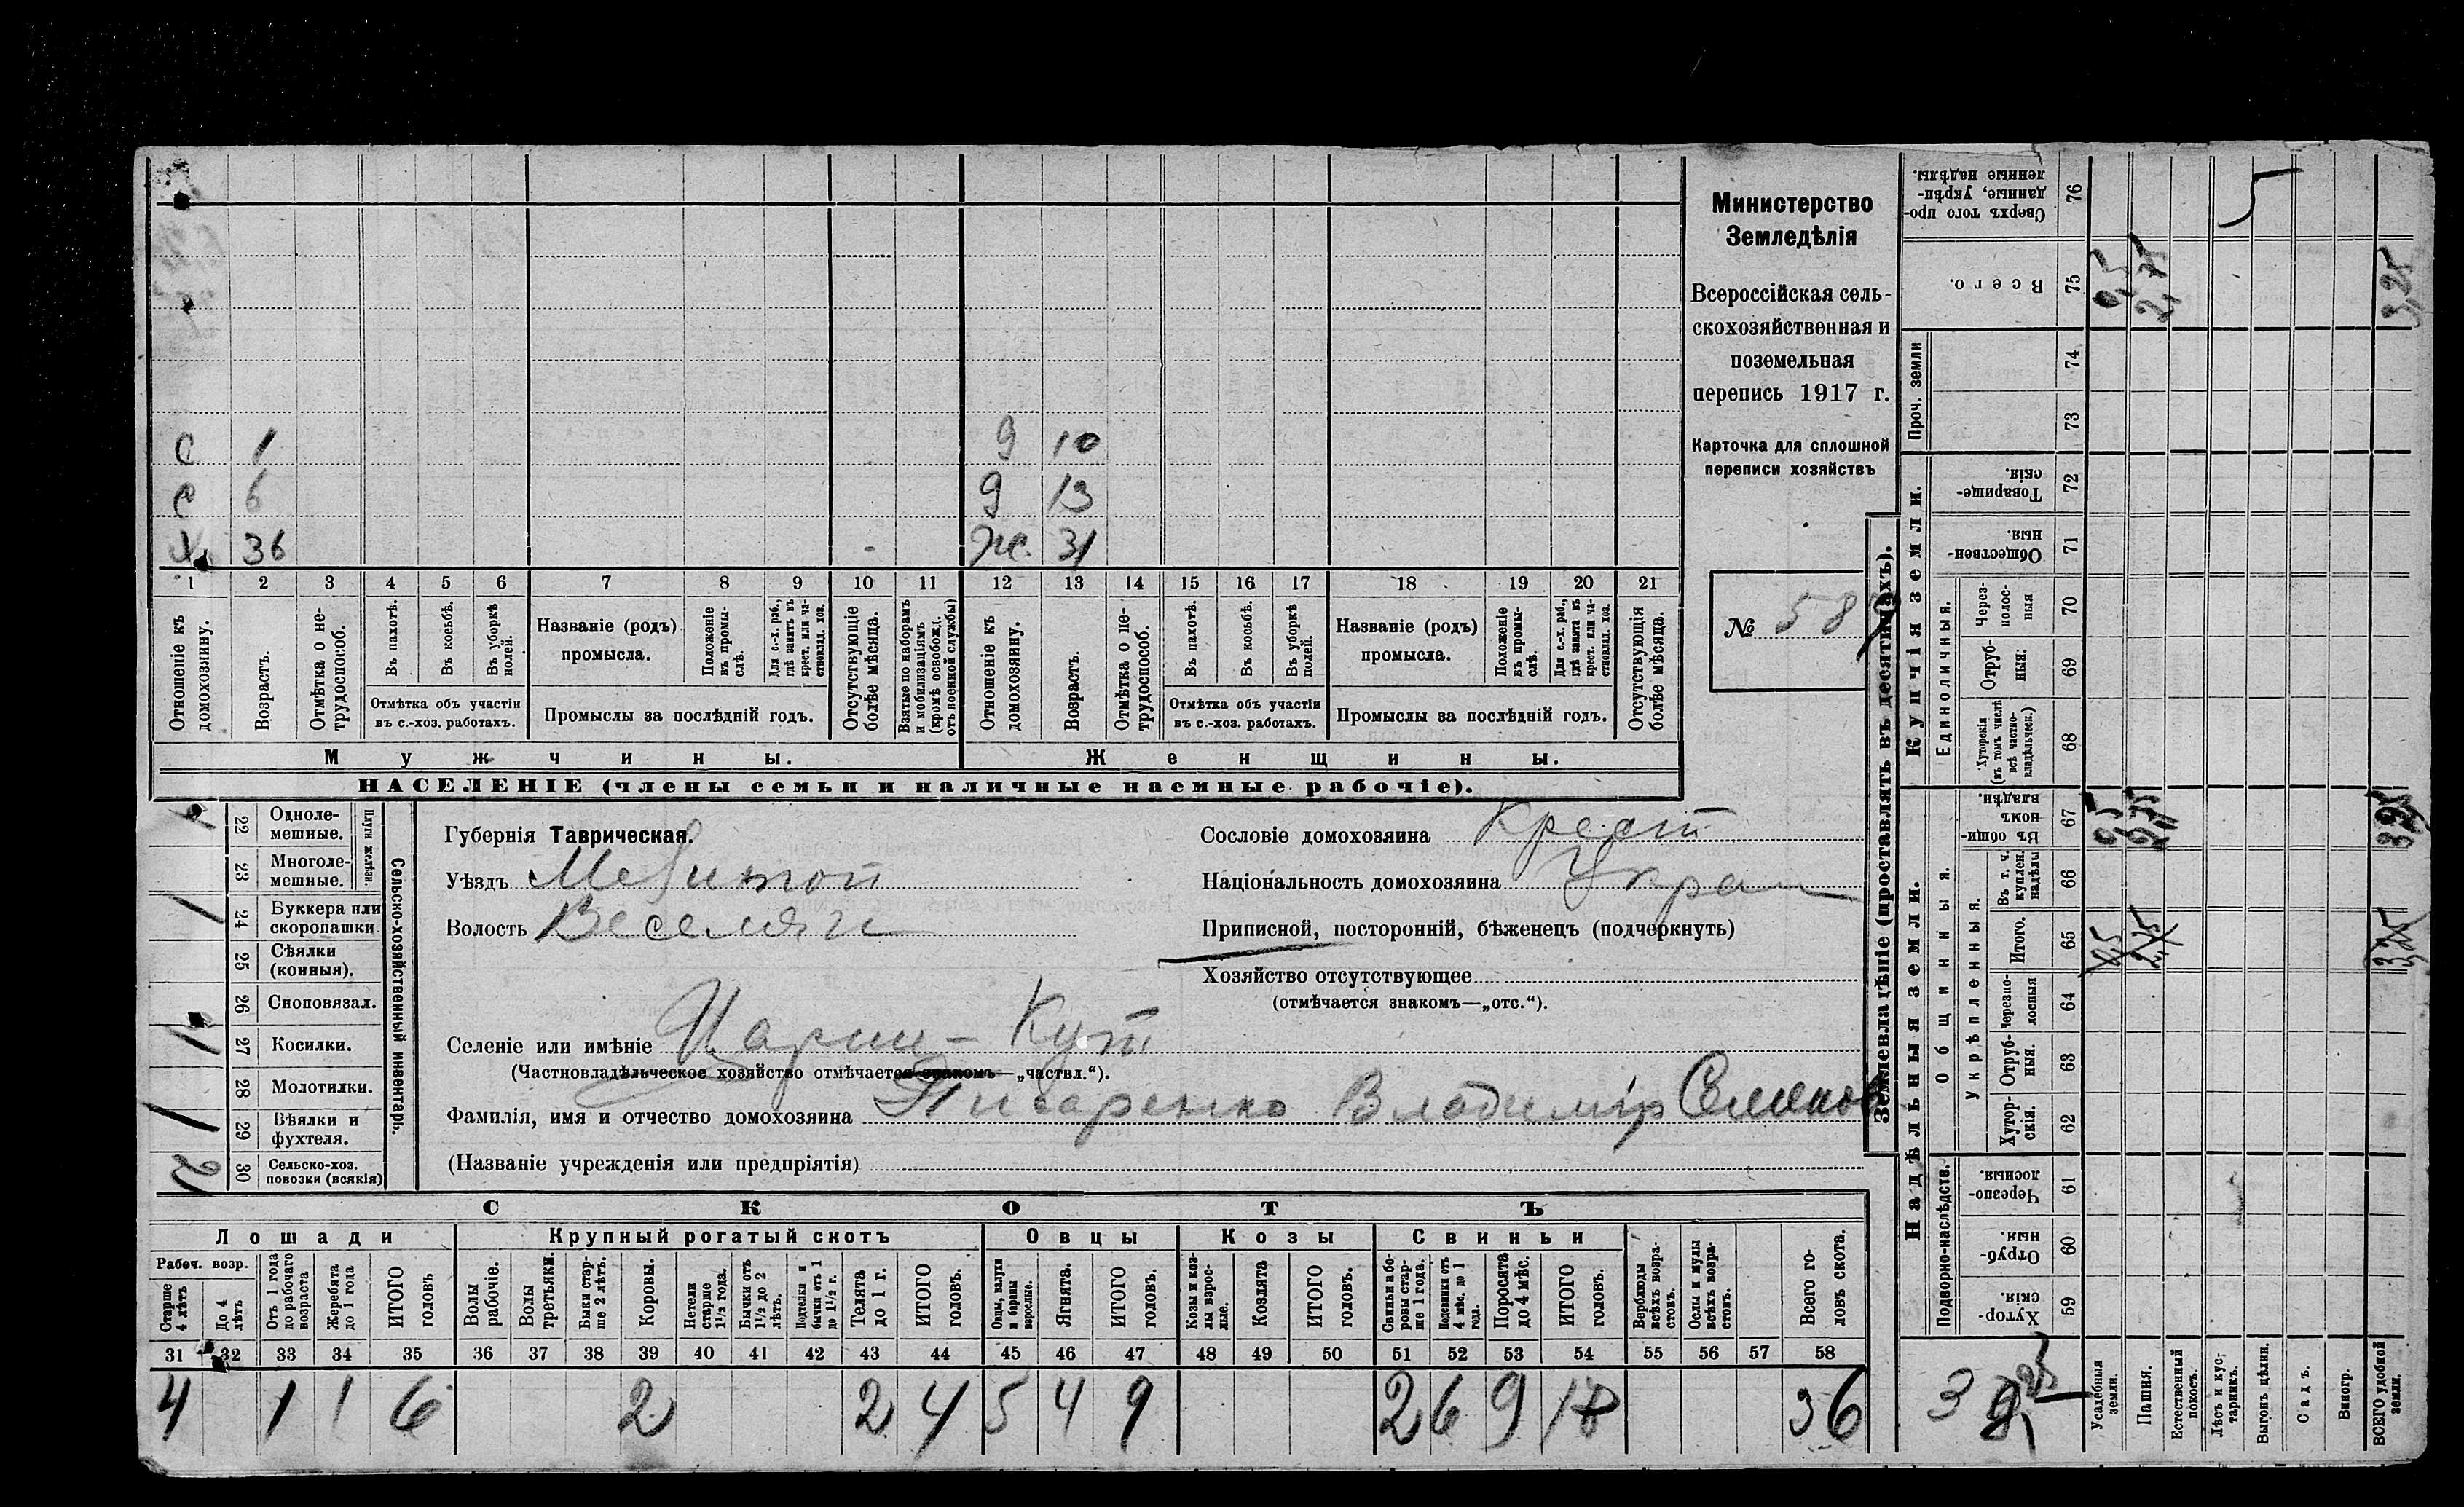 Министерство
Земледѣлія
Всероссійская сель-
скохозяйственная и
поземельная
перепись 1917 г.
Карточка для сплошной
переписи хозяйствъ
№ 58
С 1 9 10
С 6 9 13
Х 36 Ж. 31
1 2 3 4 5 6 7 8 9 10 11 12 13 14 15 16 17 18 19 20 21
Отношеніе къ домохозяину.
Возрастъ.
Отмѣтка о не-трудоспособ.
Въ пахотѣ.
Въ косьбѣ.
Въ уборкѣ полей.
Отмѣтка объ участіи
въ с.-хоз. работахъ.
Названіе (родъ)
промысла.
Положеніе въ промы-слѣ.
Для с.-х. раб., гдѣ занятъ въ крест. или ча-стновлад. хоз.
Промыслы за послѣдній годъ.
Отсутствующіе болѣе мѣсяца.
Взятые по наборамъ и мобилизаціямъ (кромѣ освобожд. отъ военной службы)
Отношеніе къ домохозяину.
Возрастъ.
Отмѣтка о не-трудоспособ.
Въ пахотѣ.
Въ косьбѣ.
Въ уборкѣ полей.
Отмѣтка объ участіи
въ с.-хоз. работахъ.
Названіе (родъ)
промысла.
Положеніе въ промы-слѣ.
Для с.-х. раб., гдѣ занята въ крест. или ча-стновлад. хоз.
Промыслы за послѣдній годъ.
Отсутствующія болѣе мѣсяца.
Мужчины.
Женщины.
НАСЕЛЕНІЕ (члены семьи и наличные наемные рабочіе).
Сельско-хозяйственный инвентарь.
Плуги желѣзн.
22 Одноле-мешные. 1
23 Многоле-мешные.
24 Буккера или скоропашки 1
25 Сѣялки (конныя).
26 Сноповязал.
27 Косилки. 1
28 Молотилки.
29 Вѣялки и фухтеля. 1
30 Сельско-хоз. повозки (всякія) 2
Губернія Таврическая.
Уѣздъ Мелитоп
Волость Веселян
Сословіе домохозяина Крест
Національность домохозяина Укра
Приписной, посторонній, бѣженецъ (подчеркнуть)
Хозяйство отсутствующее
(отмѣчается знакомъ—„отс.“).
Селеніе или имѣніе Царин-Кут
(Частновладѣльческое хозяйство отмѣчается знакомъ—„частвл.“).
Фамилія, имя и отчество домохозяина Писаренко Владимір Семенов
(Названіе учрежденія или предпріятія)
СКОТЪ
Лошади
Крупный рогатый скотъ
Овцы
Козы
Свиньи
Рабоч. возр.
Старше 4 лѣтъ
До 4 лѣтъ
Отъ 1 года до рабочаго возраста
Жеребята до 1 года
ИТОГО головъ
Волы рабочіе.
Волы третьяки.
Быки стар-ше 2 лѣтъ.
Коровы.
Нетели старше 1½ года.
Бычки отъ 1½ до 2 лѣтъ.
Подтелки и бычки отъ 1 до 1½ г.
Телята до 1 г.
ИТОГО головъ.
Овцы, валухи и бараны взрослые.
Ягнята.
ИТОГО головъ.
Козы и коз-лы взрос-лые.
Козлята
ИТОГО головъ.
Свиньи и бо-ровы стар-ше 1 года.
Подсвинки отъ 4 мѣс. до 1 года.
Поросята до 4 мѣс.
ИТОГО головъ.
Верблюды всѣхъ возра-стовъ.
Ослы и мулы всѣхъ возра-стовъ.
Всего го-ловъ скота.
31 32 33 34 35 36 37 38 39 40 41 42 43 44 45 46 47 48 49 50 51 52 53 54 55 56 57 58
4 1 1 6 2 2 4 5 4 9 2 6 9 17 36
Землевладѣніе (проставлять въ десятинахъ).
Надѣльныя земли.
Купчія земли.
Проч. земли
Подворно-наслѣдств.
Общинныя.
Укрѣпленныя.
Единоличныя.
Сверхъ того про-данные, укрѣп-ленные надѣлы. 76 5
Всего. 75 0,5 2,75 3,25
74
73
Товарище-скія. 72
Обществен-ныя. 71
Через-полос-ныя 70
Отруб-ныя; 69
Хуторскія (въ томъ числѣ всѣ частно-владѣльческ.) 68
Въ общи-номъ владѣн. 67 0,5 2,75 3,25
Въ т. ч. куплен. надѣлы 66
Итого. 65 0,5 2,75 3,25
Черезпо-лосныя 64
Отруб-ныя. 63
Хутор-скія. 62
Черезпо-лосныя. 61
Отруб-ныя. 60
Хутор-скія. 59
Усадебныя земли.
Пашня.
Естественный покосъ.
Лѣсъ и кус-тарник.
Выгонъ цѣлин.
Садъ.
Виногр.
ВСЕГО удобной земли.